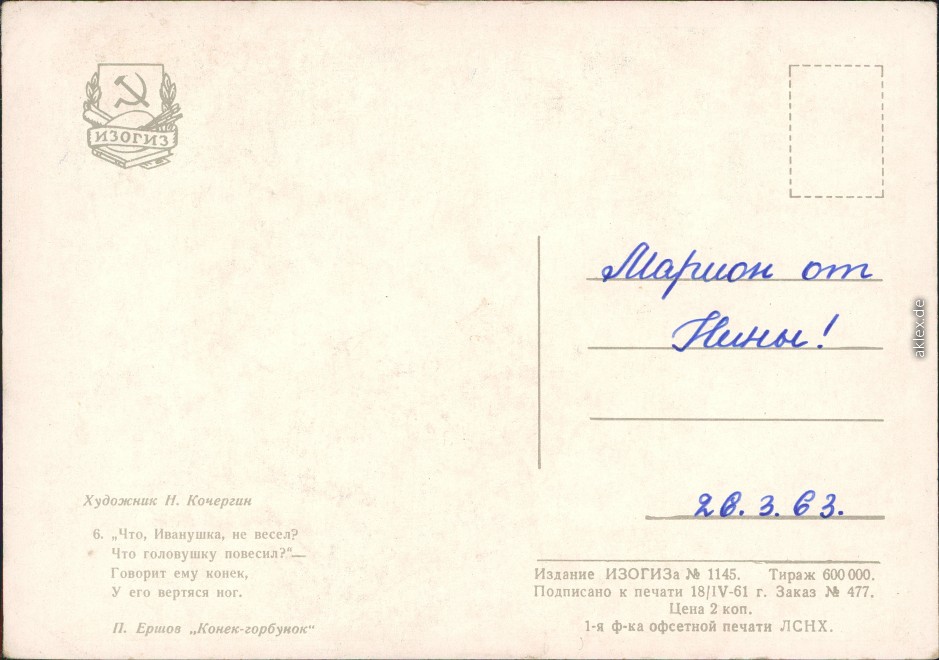 ИЗОГИЗ
Марион от
Нины!
26.3.63.
Художник Н. Кочергин
6. „Что, Иванушка, не весел?
Что головушку повесил?“—
Говорит ему конек,
У его вертяся ног.
П. Ершов „Конек-горбунок“
Издание ИЗОГИЗа № 1145. Тираж 600 000.
Подписано к печати 18/IV-61 г. Заказ № 477.
Цена 2 коп.
1-я ф-ка офсетной печати ЛСНХ.
aklex.de